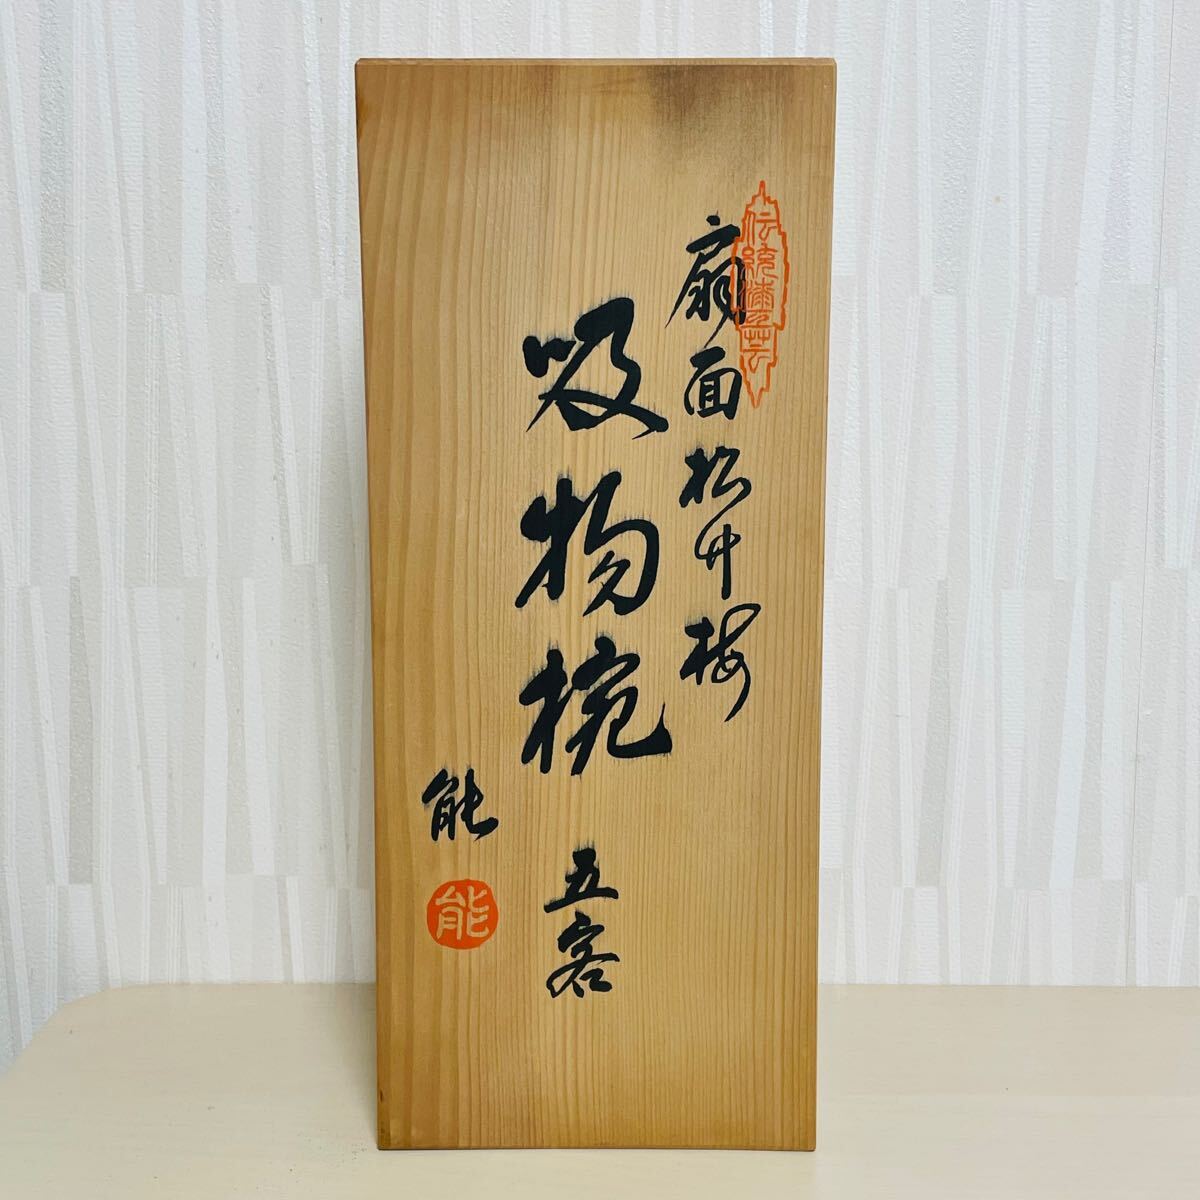 伝統漆芸
扇面松竹梅
吸物椀 五客
能
能